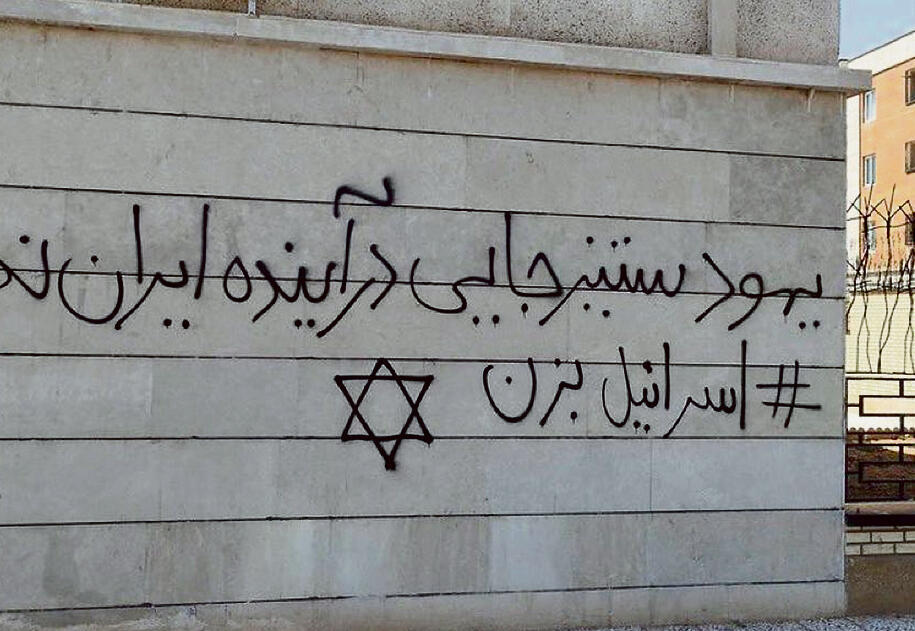 یهود ستیز جایی در آینده ایران
#اسرائیل بزن